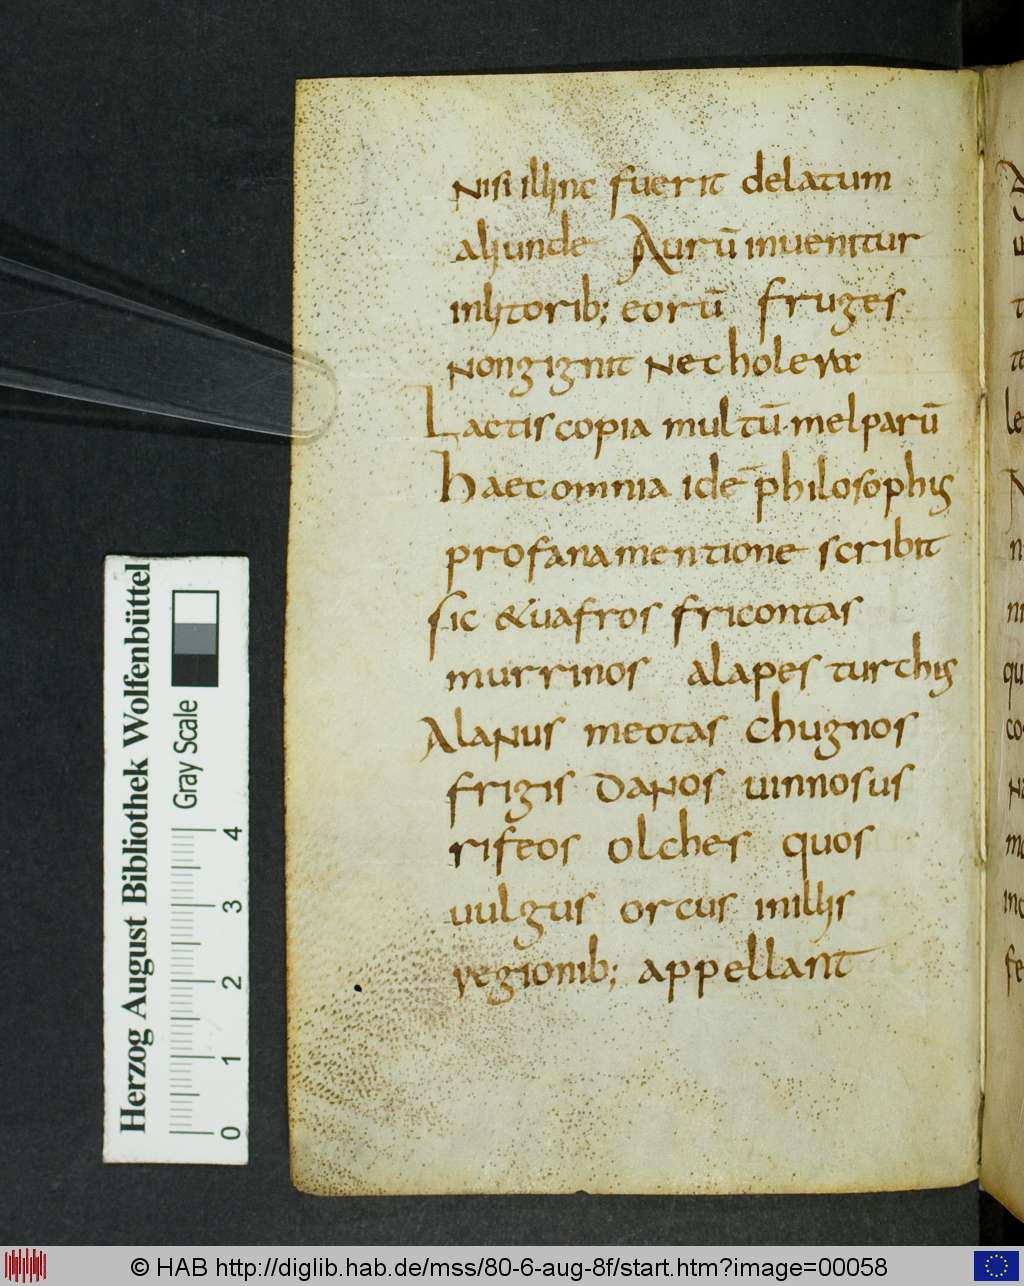 nisi illinc fuerit delatum
aliunde Aurū inuenitur
in litorib; eorū fruges
non gignit nec holera
Lactis copia multū mel parū
Haec omnia idē philosophis
profana mentione scribit
sic & uafros fricontas
murrinos alapes turchis
Alanus meotas chugnos
frigis danos uinnosus
rifeos olches quos
uulgus orcus in illis
regionib; appellant
Herzog August Bibliothek Wolfenbüttel
Gray Scale
0 1 2 3 4
© HAB http://diglib.hab.de/mss/80-6-aug-8f/start.htm?image=00058